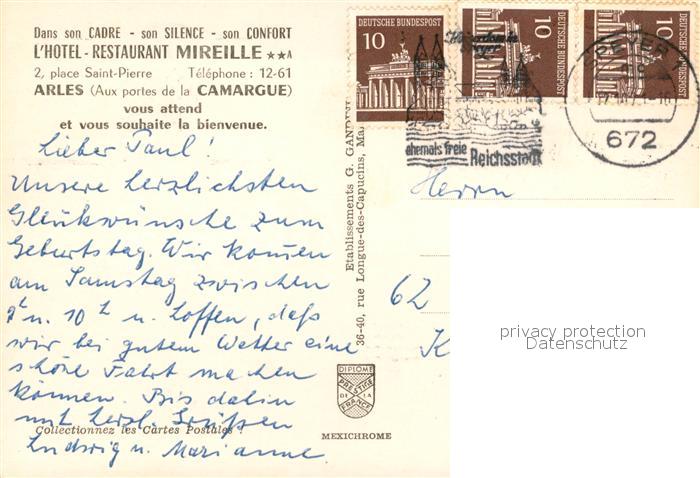 Dans son CADRE - son SILENCE - son CONFORT
L'HOTEL-RESTAURANT MIREILLE ★★A
2, place Saint-Pierre Téléphone : 12-61
ARLES (Aux portes de la CAMARGUE)
vous attend
et vous souhaite la bienvenue.
Lieber Paul!
Unsere herzlichsten
Glückwünsche zum
Geburtstag. Wir kommen
am Samstag zwischen
9h u. 10h u. hoffen, daß
wir bei gutem Wetter eine
schöne Fahrt machen
können. Bis dahin
mit herzl. Grüßen
Ludwig u. Marianne
Collectionnez les Cartes Postales !
Etablissements G.
36-40, rue Longue-des-Capucins,
DIPLOME
PRESTIGE
DE LA
FRANCE
MEXICHROME
DEUTSCHE BUNDESPOST
10
DEUTSCHE BUNDESPOST
10
DEUTSCHE BUNDESPOST
10
ehemals freie
Reichsstadt
SPEYER
672
Herrn
62
K
privacy protection
Datenschutz